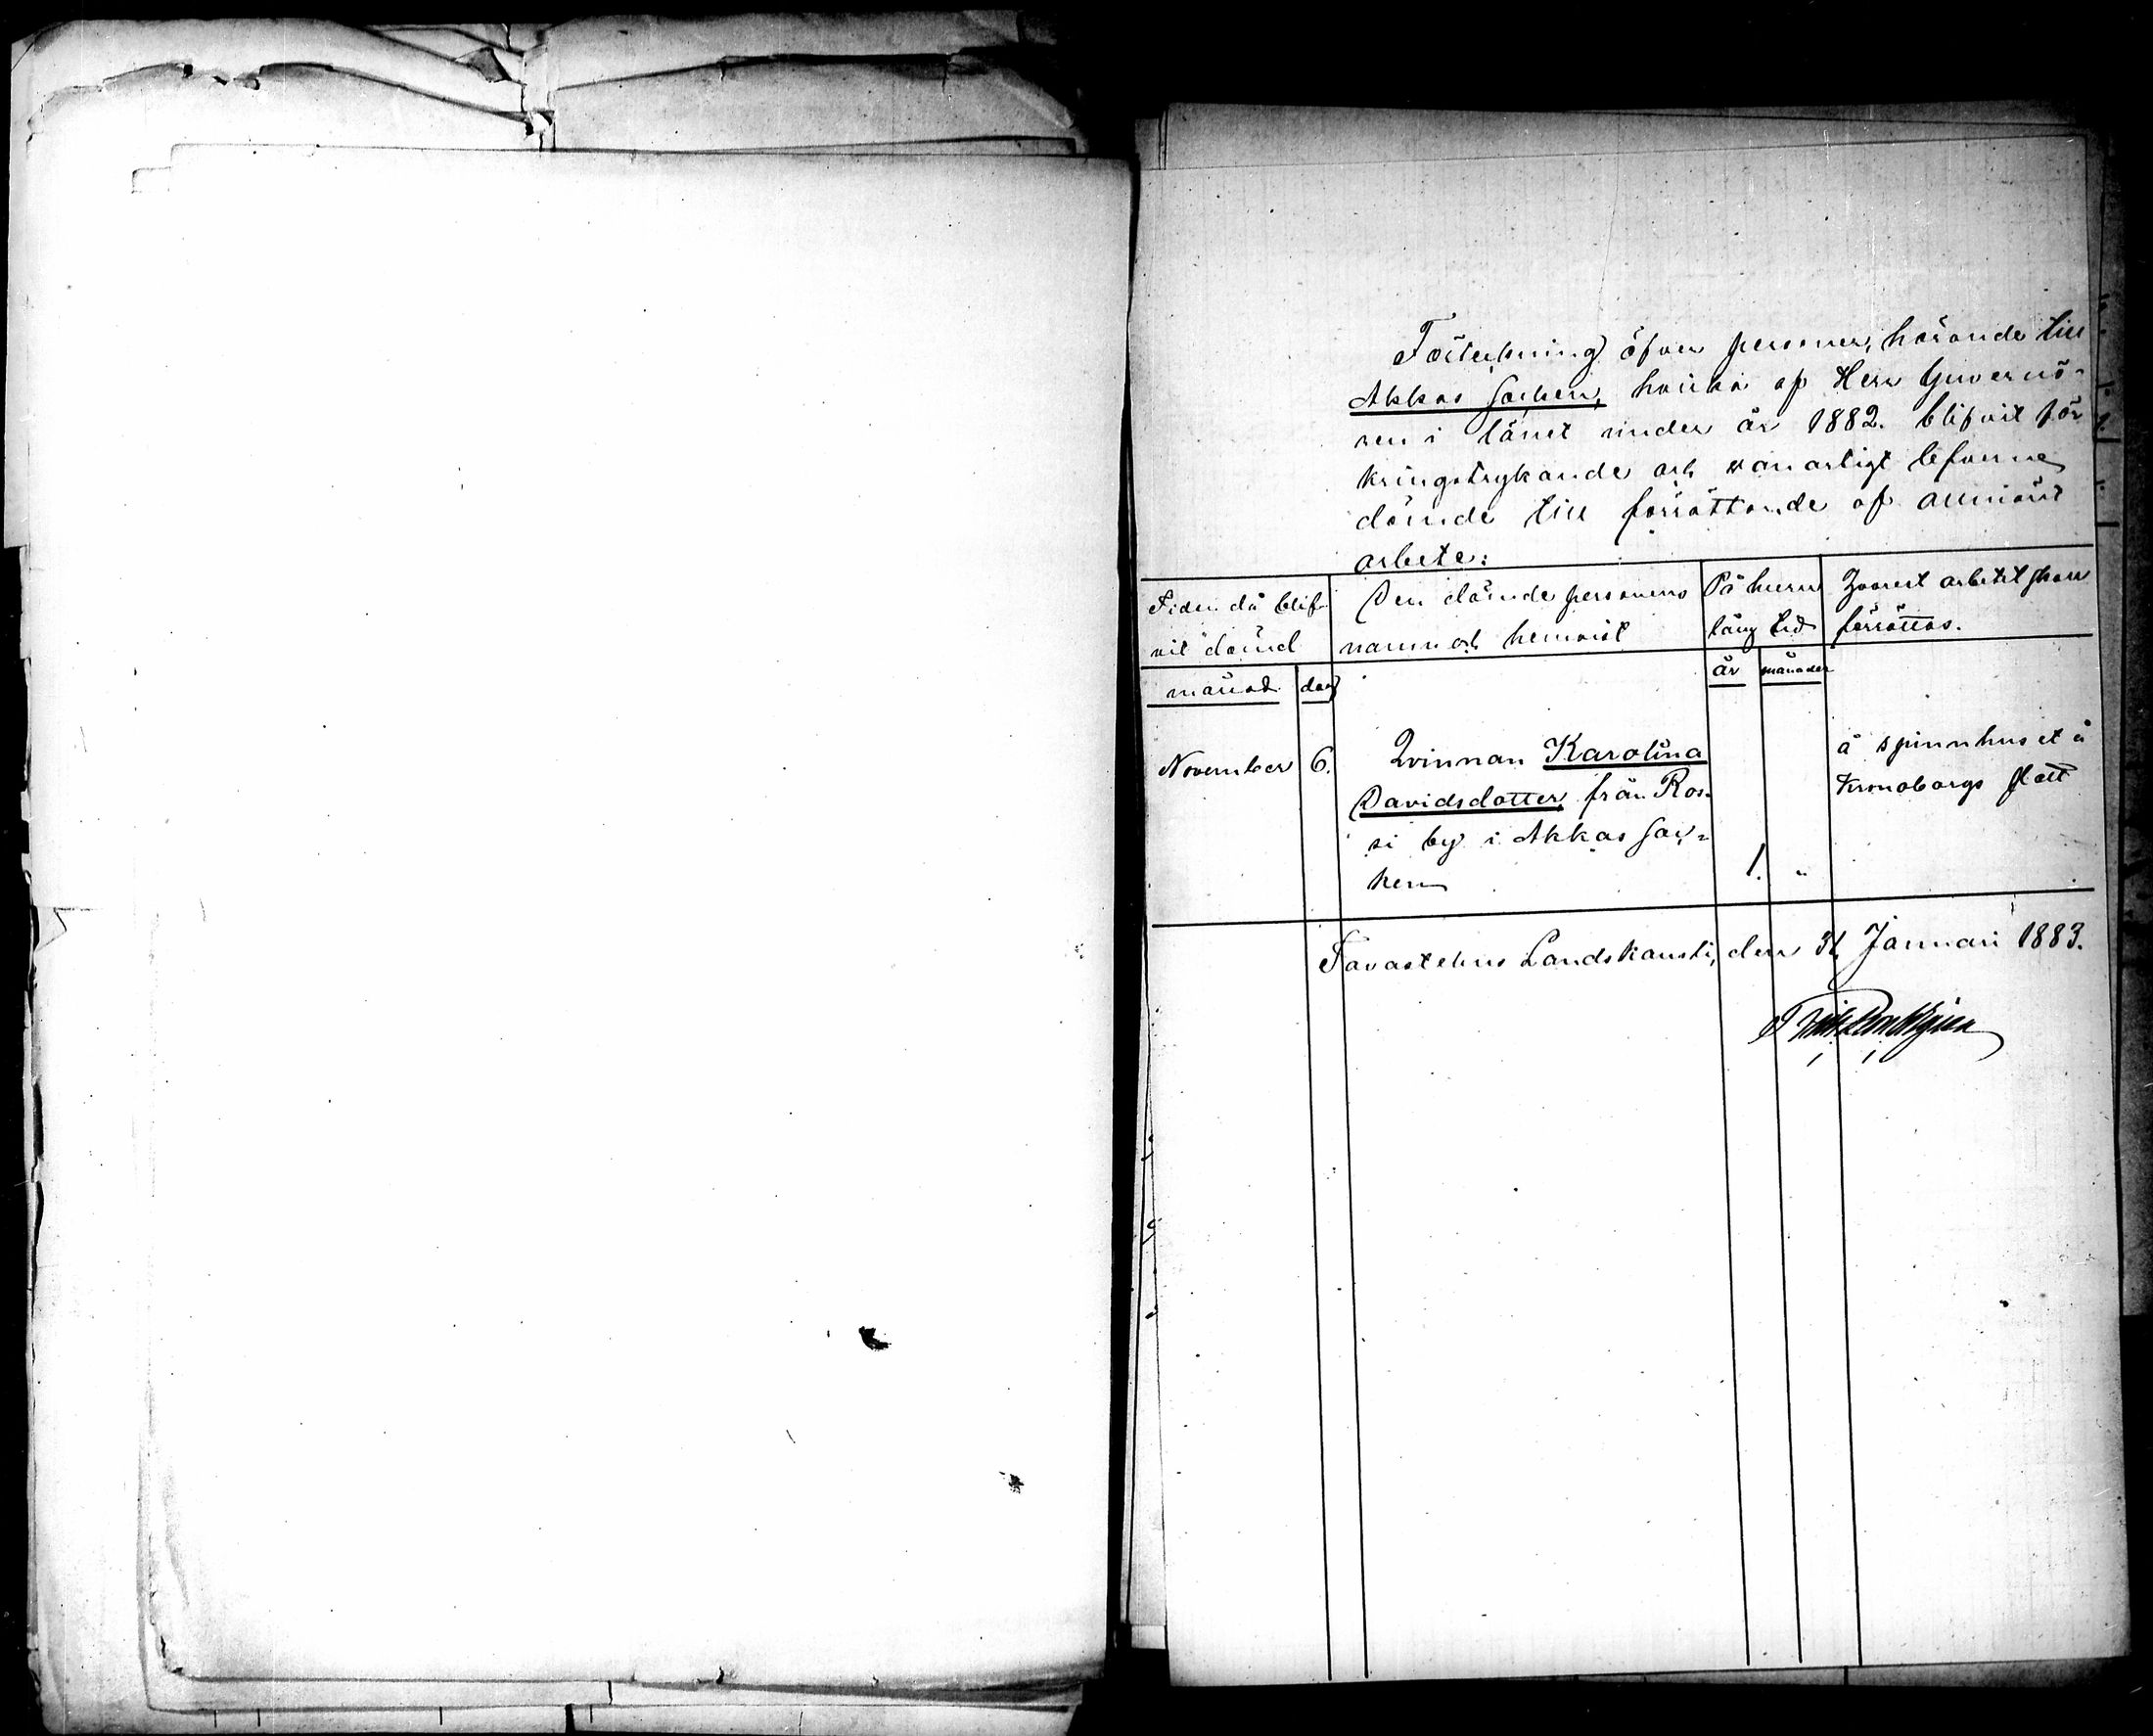 Förteckning öfver personer, hörande till
Akkas Socken, hvilka af Herr Guvernö-
ren i länet under år 1882. blifvit för
kringstrykande och vanartigt lefverne
dömde till förrättande af allmänt
arbete:
Tiden då blif-
vit dömd
Den dömde personens
namn och hemvist
På huru
lång tid
Hvarest arbetet skall
förrättas.
månad. dag
år månader
November 6. Qvinnan Karolina
Davidsdotter från Ros-
si by i Akkas Soc-
ken 1. "
å spinnhuset å
Kronoborgs slott
Tavastehus Landskansli, den 31 Januari 1883.